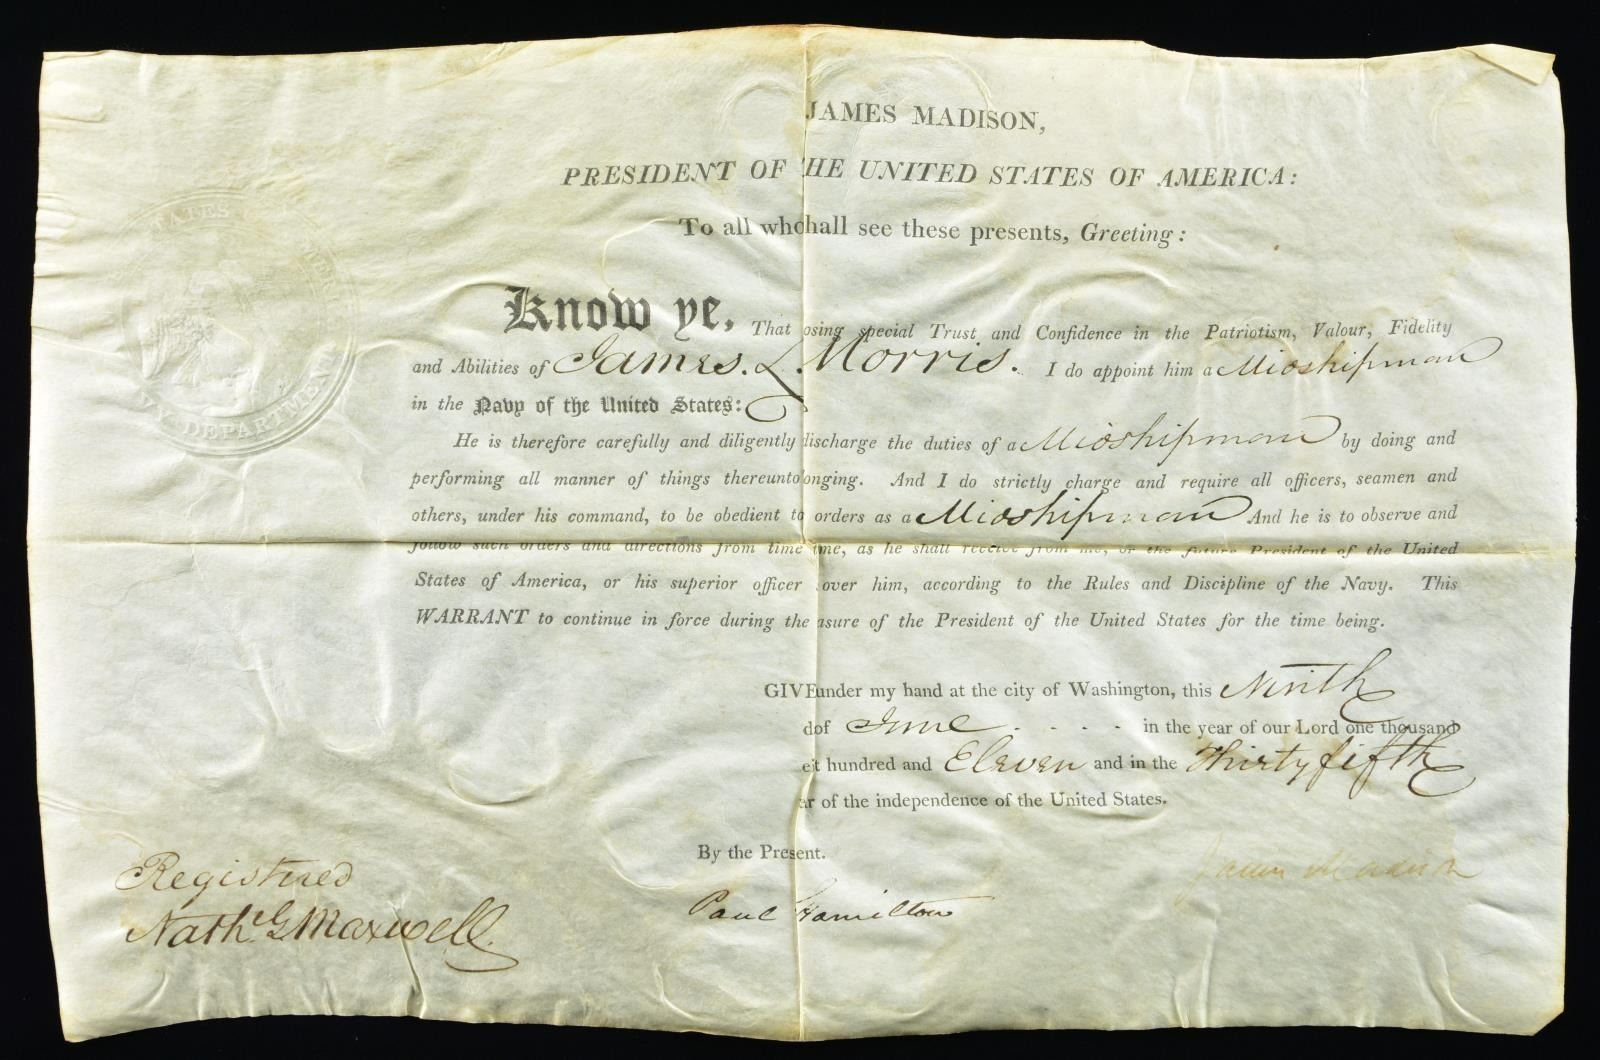 JAMES MADISON,
PRESIDENT OF HE UNITED STATES OF AMERICA:
To all who hall see these presents, Greeting:
Know ye, That osing special Trust and Confidence in the Patriotism, Valour, Fidelity
and Abilities of James. L Morris. I do appoint him a Midshipman
in the Navy of the United States:
He is therefore carefully and diligently discharge the duties of a Midshipman by doing and
performing all manner of things thereunto onging. And I do strictly charge and require all officers, seamen and
others, under his command, to be obedient to orders as a Midshipman And he is to observe and
follow such orders and directions from time me, as he shall receive from me, or the future President of the United
States of America, or his superior officer over him, according to the Rules and Discipline of the Navy. This
WARRANT to continue in force during the asure of the President of the United States for the time being.
GIVE under my hand at the city of Washington, this Ninth
d of June . - - - in the year of our Lord one thousand
eit hundred and Eleven and in the Thirty fifth
ar of the independence of the United States.
By the Present.
James Madison
Registered
Paul Hamilton
Nathl G Maxwell.
STATES
NAVY DEPARTMENT